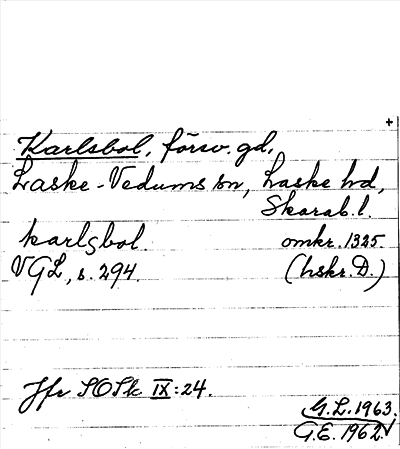 +
Karlsbol, försv. gd,
Laske-Vedums sn, Laske hd,
Skarab. l.
karlsbol. omkr. 1325.
VGL, s. 294. (hskr. D.)
Jfr SOSk IX:24.
G.L. 1963.
G.E. 1962